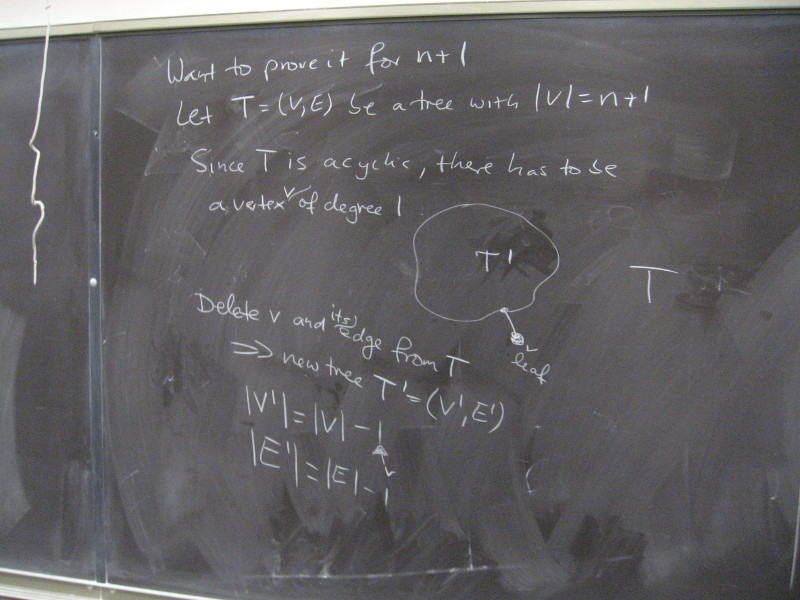 Want to prove it for n+1
Let T=(V,E) be a tree with |V|=n+1
Since T is acyclic, there has to be
a vertex v of degree 1
T'
T
v
leaf
Delete v and its edge from T
⇒ new tree T'=(V',E')
|V'|=|V|-1
|E'|=|E|-1
v